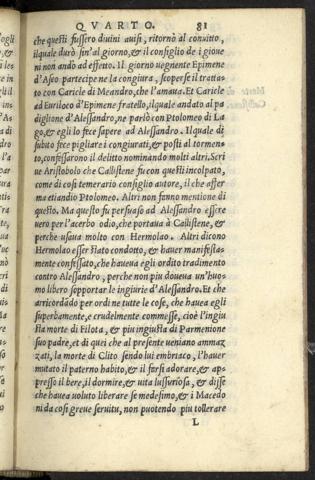 QVARTO. 81
che questi fussero diuini auisi, ritornò al conuitto,
ilquale durò fin'al giorno, & il consiglio de i gioue
ni non andò ad effetto. Il giorno uegnente Epimene
d'Aseo partecipe ne la congiura, scoperse il tratta
to con Caricle di Meandro, che l'amaua. Et Caricle
ad Euriloco d'Epimene fratello, ilquale andato al pa
diglione d'Alessandro, ne parlò con Ptolomeo di La
go, & egli lo fece sapere ad Alessandro. Ilquale di
subito fece pigliare i congiurati, & posti al tormen
to, confessarono il delitto nominando molti altri. Scri
ue Aristobolo che Callistene fu con questi incolpato,
come di cosi temerario consiglio autore, il che affer
ma etiandio Ptolomeo. Altri non fanno mentione di
questo. Ma questo fu persuaso ad Alessandro essere
uero per l'acerbo odio, che portaua à Callistene, &
perche usaua molto con Hermolao. Altri dicono
Hermolao esser stato condotto, & hauer manifesta-
mente confessato, che haueua egli ordito tradimento
contro Alessandro, perche non piu doueua un'huo-
mo libero sopportar le ingiurie d'Alessandro. Et che
arricordãdo per ordine tutte le cose, che hauea egli
superbamente, e crudelmente commesse, cioè l'ingiu
sta morte di Filota, & piu ingiusta di Parmenione
suo padre, et di quei che al presente ueniano ammaz
zati, la morte di Clito sendo lui embriaco, l'hauer
mutato il paterno habito, & il farsi adorare, & ap-
presso il bere, il dormire, & uita lussuriosa, & disse
che hauea uoluto liberare se medesimo, & i Macedo
ni da cosi greue seruitu, non puotendo piu tollerare
L